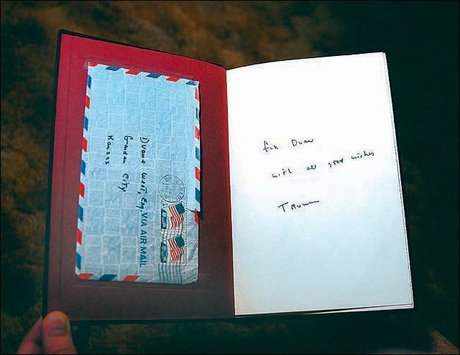 Duane West, Esq.
Garden City
Kansas
VIA AIR MAIL
for Duane
with all good wishes
Truman